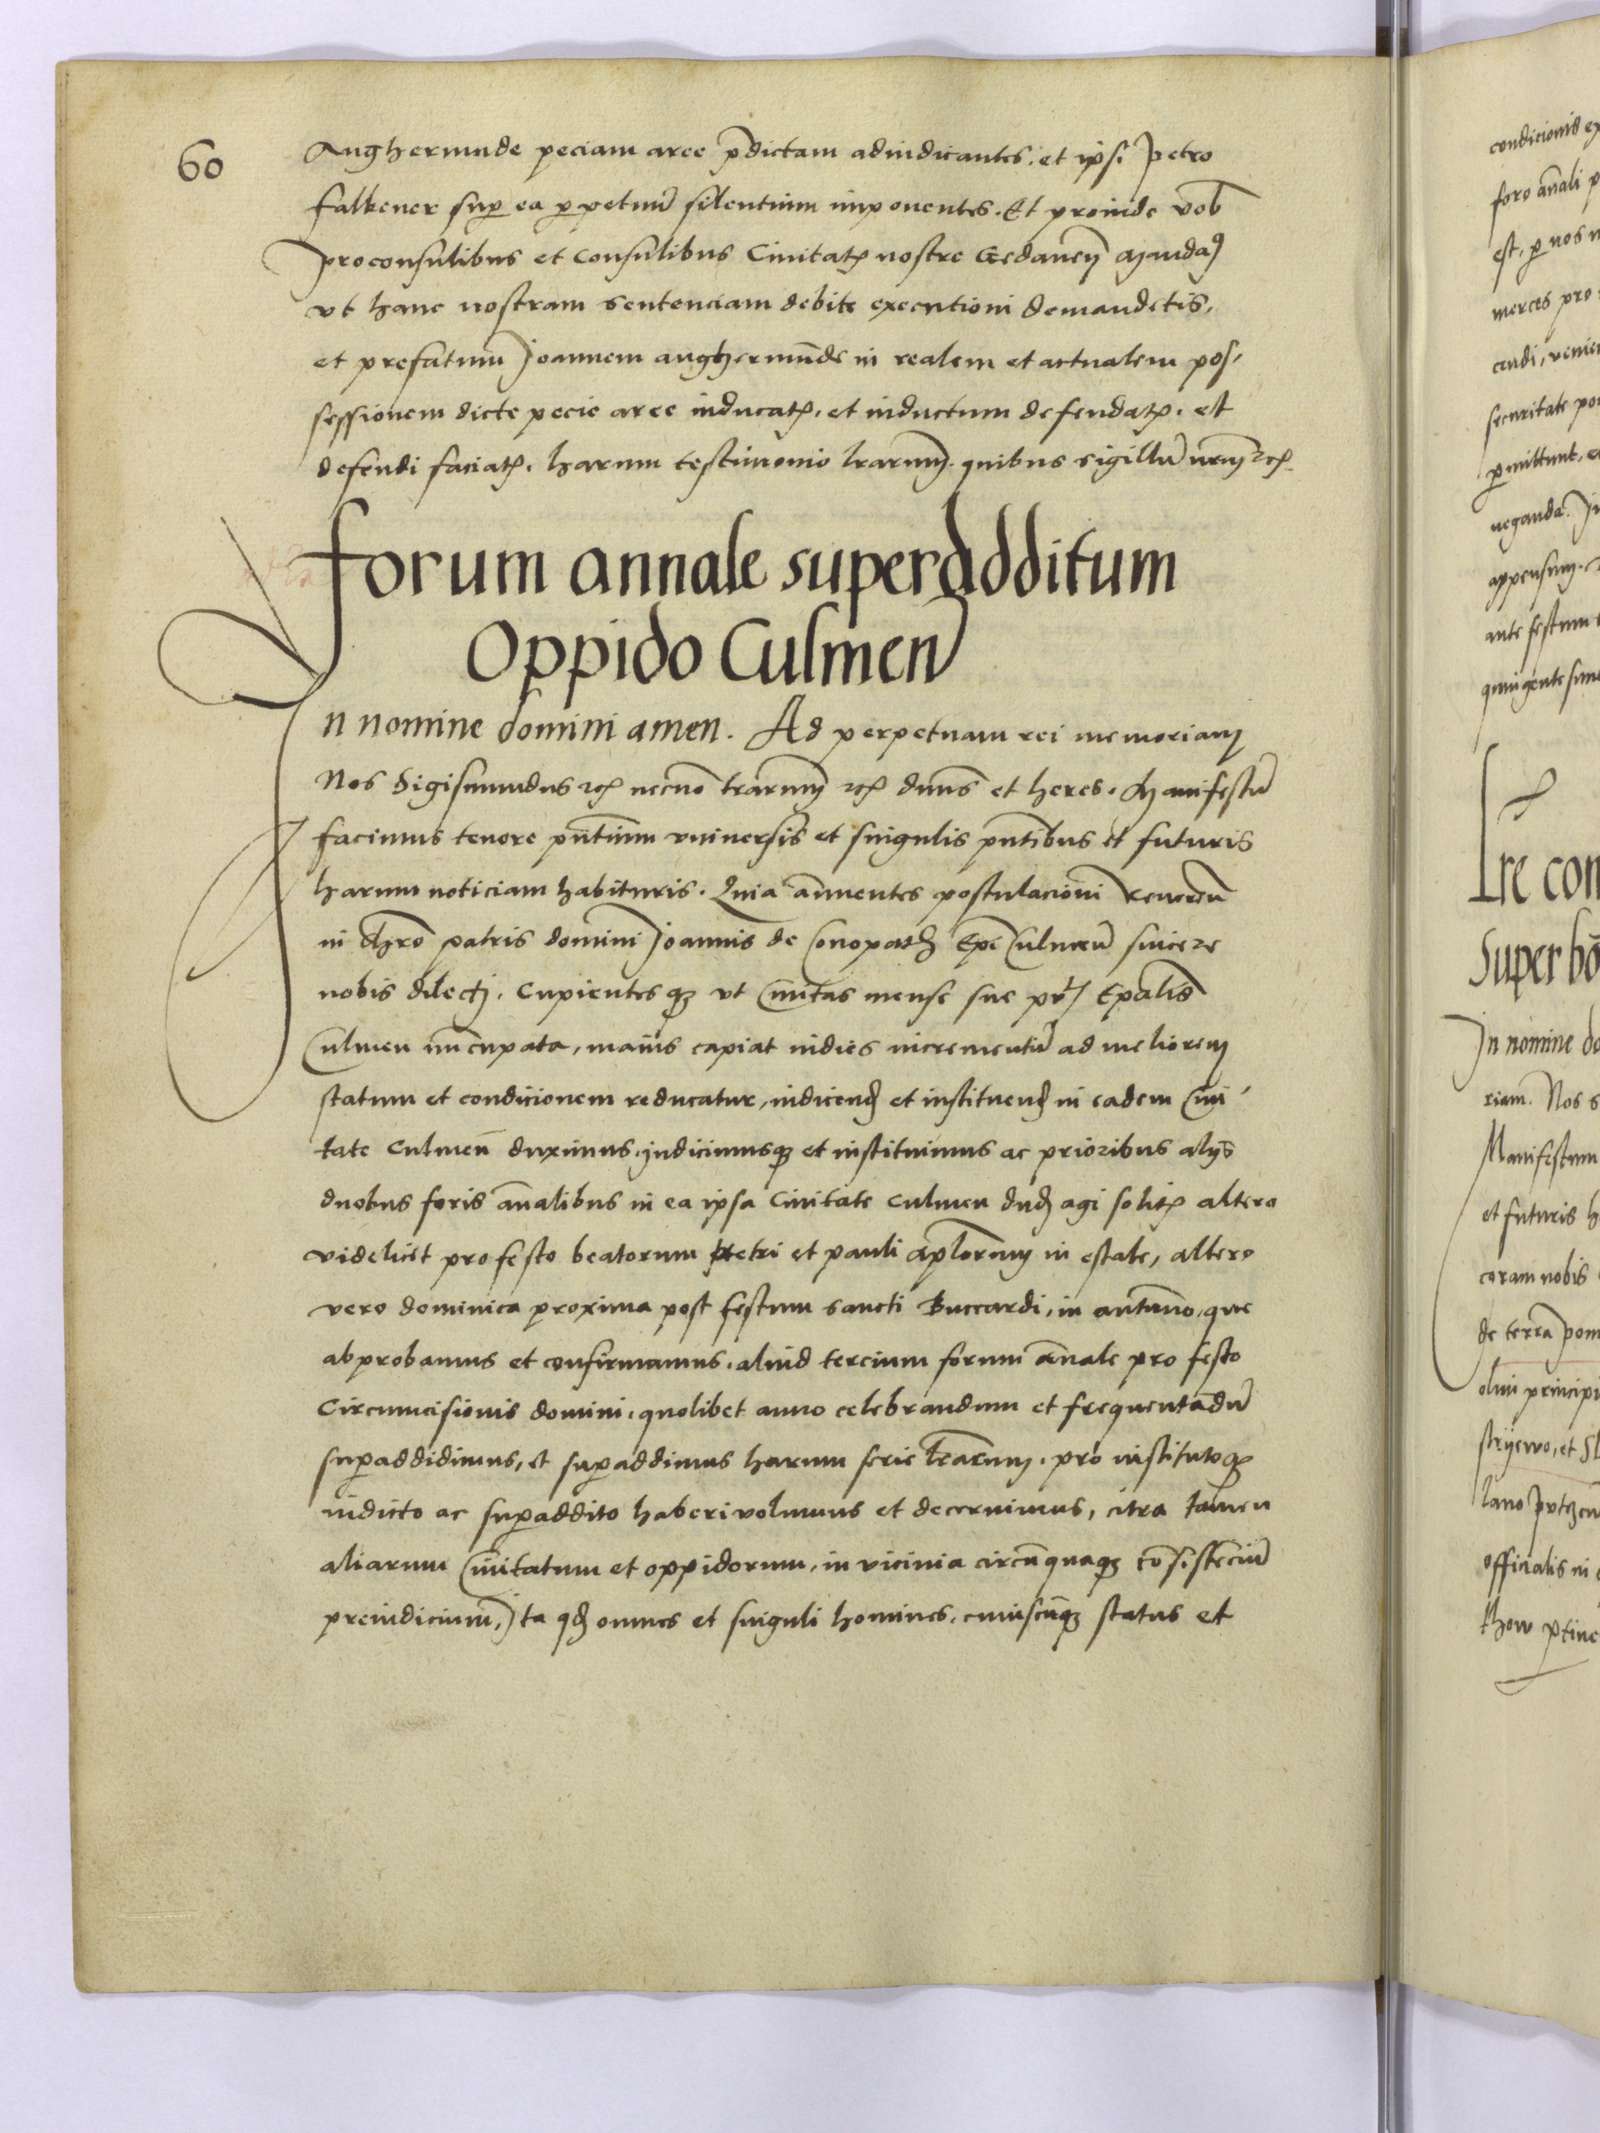 60
Anghermnde peciam aree p̄dictam adiudicantes. et ipsi Petro
Falkener sup ea ppetuū silentium imponentes. Et proinde vob̄
Proconsulibus et Consulibus Ciuitatꝭ nostre Gedaneñ Mandaꝰ
vt hanc nostram sentenciam debite executioni demandetis,
et prefatum Joannem anghermūde in realem et actualem pos,
sessionem dicte pecie aree inducatꝭ. et inductum defendatꝭ. et
defendi faciatꝭ. harum testimonio lrarum. quibus sigillū nrm̄ ꝛcꝭ
Forum annale superadditum
Oppido Culmen̄
In nomine domini amen. Ad perpetuam rei memoriam
Nos Sigismundus ꝛcꝭ necnō trarum̄ ꝛcꝭ dnūs et heres. Manifestū
facimus tenore pn̄tium vniuersis et singulis pn̄tibus et futuris
harum noticiam habituris. Quia annuentes postulacioni Reueren̄
in Chrō patris domini Joannis de Conopath Epī Culmeñ sincere
nobis dilecti. Cupientesqꝫ vt Ciuitas mense sue Epalis
Culmen nūcupata, maius capiat indies incrementū ad meliorem
statum et condicionem reducatur, indicend et instituend in eadem Ciui
tate Culmeñ duximus, indicimusqꝫ et instituimus ac prioribus alijs
duobus foris ān̄alibus in ea ipsa Ciuitate Culmen dud agi solitꝭ altero
videlicet pro festo beatorum petri et pauli aplorum in estate, altero
vero dominica proxima post festum sancti Buccardi, in autūno, que
abprobamus et confirmamus. aliud tercium forum ān̄ale pro festo
Circumcisionis domini. quolibet anno celebrandum et frequentādū
supaddidimus, et supaddimus harum serie lrarum. pro institutoqꝫ
indicto ac supaddito haberi volumus et decernimus, citra tamen
aliarum Ciuitatum et oppidorum, in vicinia circūquaqꝫ cōsistēciū
preiudicium, Ita qd omnes et singuli homines, cuiuscūqꝫ status et
condicionis
foro ān̄ali
est, p nos
merces pro
candi,
securitate
pmittunt,
neganda.
appensum.
ante festum
Lre con
Super
In nomine
riam. Nos
Manifestum
et futuris
coram nobis
de terra
olim
et
lano
officialis in